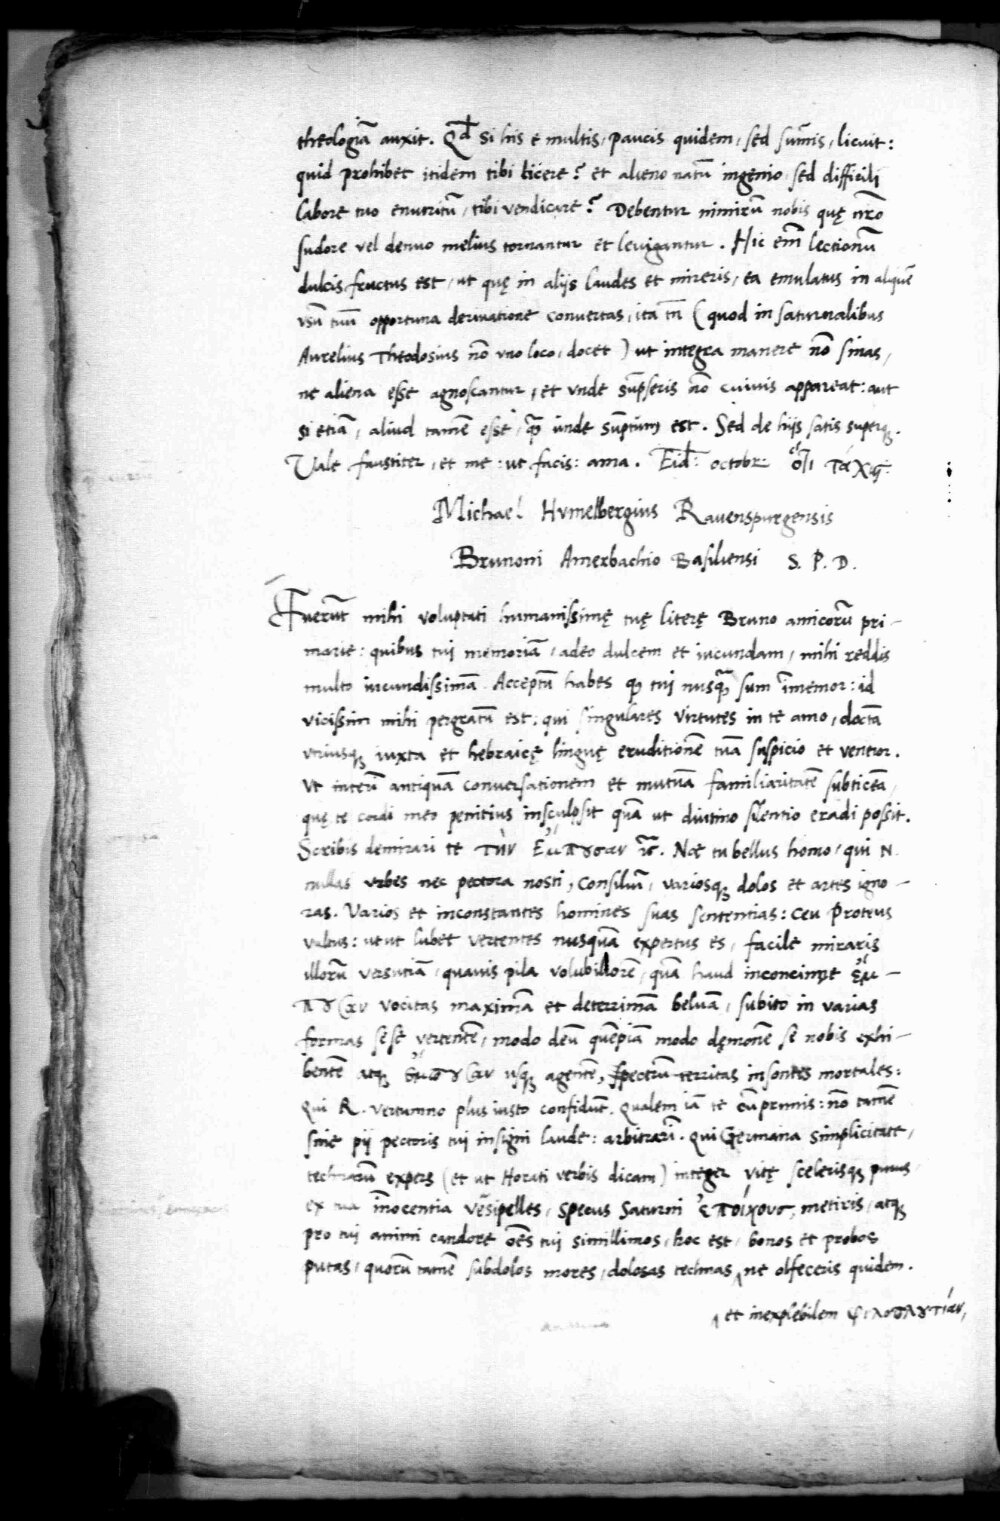 theologiā auxit. Qđ si his e multis, paucis quidem, sed sūmis, licuit:
quid prohibet itidem tibi licere? et alieno natū ingenio, sed difficili
labore tuo enutritū, tibi vendicare? Debentur nimirū nobis quę nr̄o
sudore vel denuo melius tornantur et levigantur. Hic em̄ lectionū
dulcis fructus est, ut quę in alijs laudes et mireris, ea emulatus in aliquē
usū tuū opportuna derivatione convertas, ita tn̄ (quod in saturnalibus
Aurelius Theodosius nō uno loco, docet) ut integra manere nō sinas,
ne aliena esse agnoscantur, et unde sūpseris nō cuivis appareat: aut
si etiā, aliud tamē esse, q̄ unde sūptum est. Sed de hijs satis superq.
Vale faustiter, et me: ut facis: ama. Eid: octobr:
Michael Humelbergius Ravenspurgensis
Brunoni Amerbachio Basiliensi S. P. D.
Fuerūt mihi voluptati humanissimę tuę literę Bruno amicorū pri-
marie: quibus tui memoriā, adeo dulcem et iucundam, mihi reddis
multo iucundissimā. Acceptū habes q tui nusq̄ sum īmemor: id
vicissim mihi pergratū est: qui singulares virtutes in te amo, doctā
utriusq iuxta et hebraicę linguę eruditionē tuā suspicio et veneror.
Ut interī antiquā conversationem et mutuā familiaritatē subticeā,
quę te cordi meo penitius insculpsit quā ut diutino silentio eradi possit.
Scribis demirari te τὴν Ἔμπουσαν. Nae tu bellus homo, qui N.
nullas urbes nec pectora nosti, Consiliū, variosq dolos et artes igno-
ras. Varios et inconstantes homines suas sententias: ceu Proteus
vultus: utut lubet vertentes nusquā expertus es, facile miraris
illorū versutiā, quavis pila volubiliorē, quā haud inconcinne ἔμ-
πουσαν vocitas maximā et deterrimā beluā, subito in varias
formas sese vertentē, modo deū quēpiā modo dęmonē se nobis exhi-
bentē atq ἔμπουσαν usq agentē, territas insontes mortales:
qui R. vertumno plus iusto confidūt. qualem iā te cūprimis: nō tamē
sine pij pectoris tui insigni laude: arbitrari. qui Germana simplicitate,
technarū expers (et ut Horati verbis dicam) integer vitę scelerisq purus,
ex tua īnocentia vēsipelles, specus Saturni ἐποίκους, metiris, atq
pro tui animi candore oēs tui simillimos, hoc est, bonos et probos
putas, quorū tamē subdolos mores, dolosas technas ‸ ne olfeceris quidem.
‸ et inexplebilem φιλοπλουτίαν,